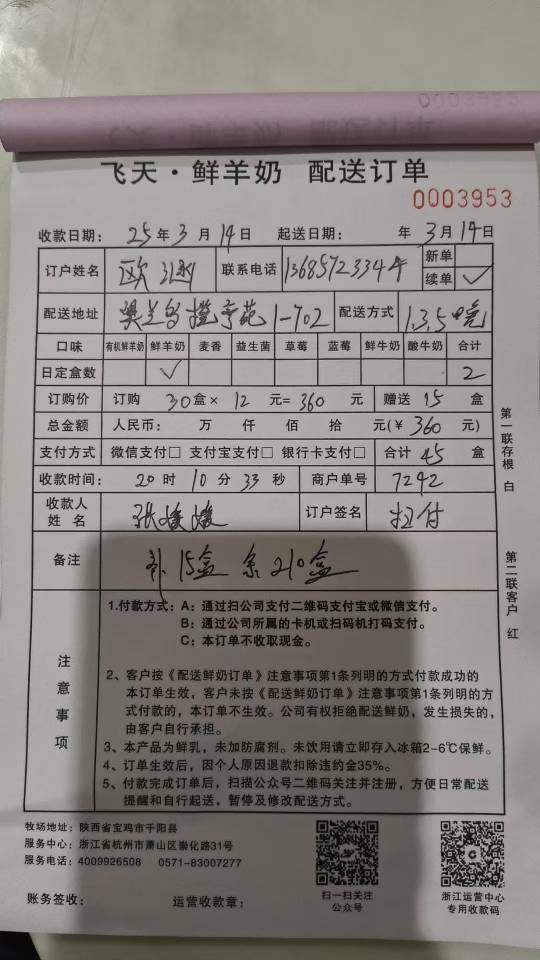 飞天·鲜羊奶 配送订单
0003953
收款日期: 25年3月14日 起送日期: 年3月14日
订户姓名 欧 联系电话 13685723344 新单
续单 ✓
配送地址 澳兰 1-702 配送方式 1.3.5晚
口味 有机鲜羊奶 鲜羊奶 麦香 益生菌 草莓 蓝莓 鲜牛奶 酸牛奶 合计
日定盒数 ✓ 2
订购价 订购 30盒× 12元= 360元 赠送 15盒
总金额 人民币: 万 仟 佰 拾 元(¥ 360元)
支付方式 微信支付□ 支付宝支付□ 银行卡支付□ 合计 45盒
收款时间: 20时10分33秒 商户单号 7292
收款人
姓 名 张媛媛 订户签名 扫付
备注 补15盒 余210盒
注意事项
1.付款方式: A: 通过扫公司支付二维码支付宝或微信支付。
B: 通过公司所属的卡机或扫码机打码支付。
C: 本订单不收取现金。
2、客户按《配送鲜奶订单》注意事项第1条列明的方式付款成功的
本订单生效,客户未按《配送鲜奶订单》注意事项第1条列明的方
式付款的,本订单不生效。公司有权拒绝配送鲜奶,发生损失的,
由客户自行承担。
3、本产品为鲜乳,未加防腐剂。未饮用请立即存入冰箱2-6℃保鲜。
4、订单生效后,因个人原因退款扣除违约金35%。
5、付款完成订单后,扫描公众号二维码关注并注册,方便日常配送
提醒和自行起送,暂停及修改配送方式。
第一联存根 白
第二联客户 红
牧场地址: 陕西省宝鸡市千阳县
服务中心: 浙江省杭州市萧山区崇化路31号
服务电话: 4009926508 0571-83007277
账务签收: 运营收款章:
扫一扫关注
公众号
浙江运营中心
专用收款码